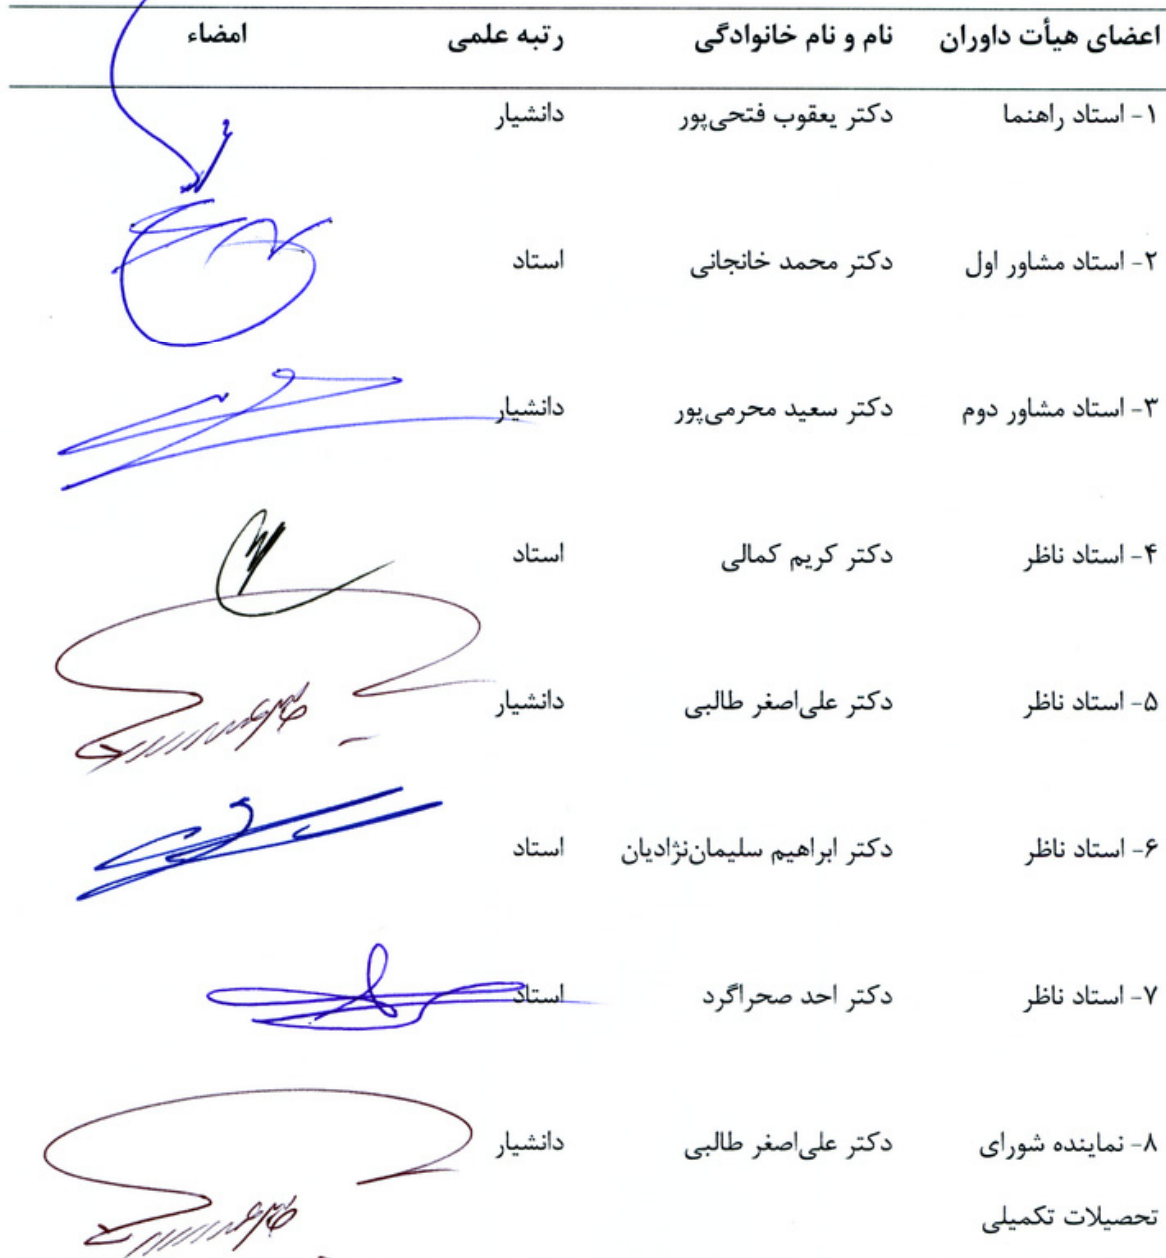 اعضای هیأت داوران نام و نام خانوادگی رتبه علمی امضاء
۱- استاد راهنما دکتر یعقوب فتحی‌پور دانشیار
۲- استاد مشاور اول دکتر محمد خانجانی استاد
۳- استاد مشاور دوم دکتر سعید محرمی‌پور دانشیار
۴- استاد ناظر دکتر کریم کمالی استاد
۵- استاد ناظر دکتر علی‌اصغر طالبی دانشیار
۶- استاد ناظر دکتر ابراهیم سلیمان‌نژادیان استاد
۷- استاد ناظر دکتر احد صحراگرد استاد
۸- نماینده شورای دکتر علی‌اصغر طالبی دانشیار
تحصیلات تکمیلی